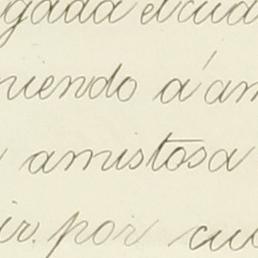 gada el cud
uiendo á am
amistosa
ir. por cu